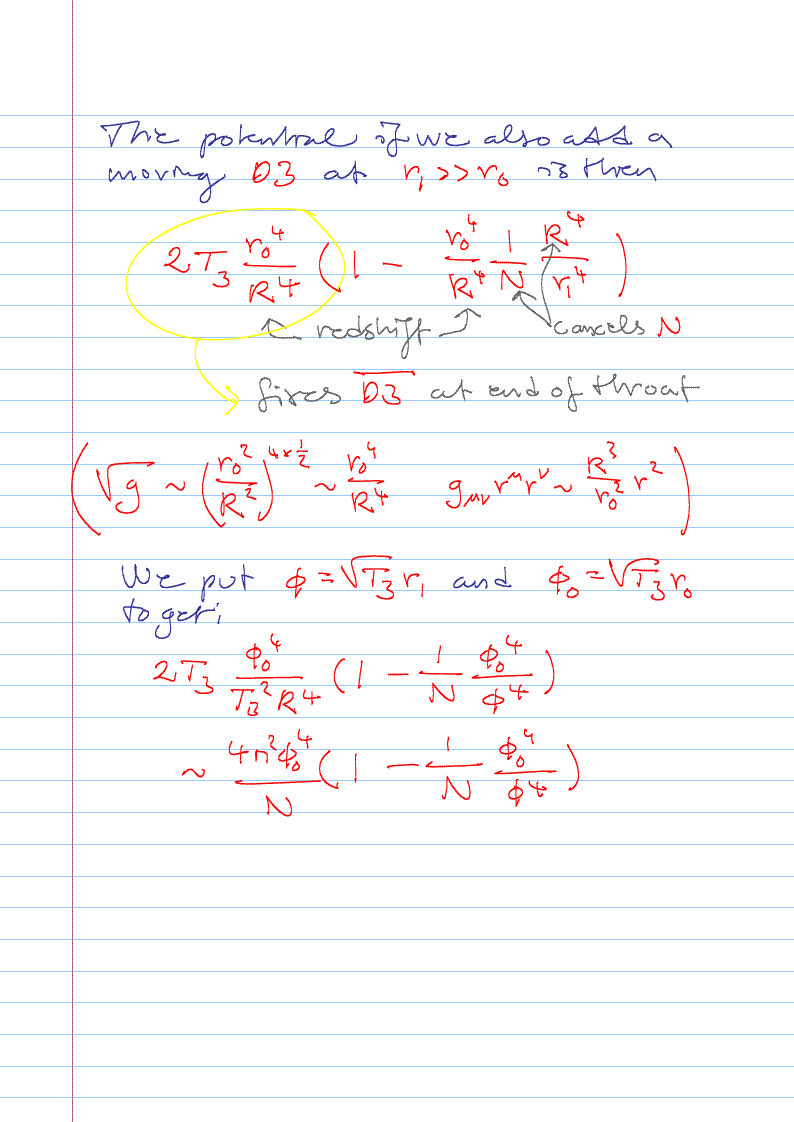 The potential if we also add a
moving D3 at r₁ >> r₀ is then
2T₃ r₀⁴/R⁴ (1 − r₀⁴/R⁴ 1/N R⁴/r₁⁴)
redshift cancels N
fixes D̅3̅ at end of throat
(√g ~ (r₀²/R²)^(4×1/2) ~ r₀⁴/R⁴ g_μν r^μ r^ν ~ R³/r₀² r²)
We put ϕ = √T₃ r₁ and ϕ₀ = √T₃ r₀
to get;
2T₃ ϕ₀⁴/(T₃² R⁴) (1 − 1/N ϕ₀⁴/ϕ⁴)
~ 4π²ϕ₀⁴/N (1 − 1/N ϕ₀⁴/ϕ⁴)